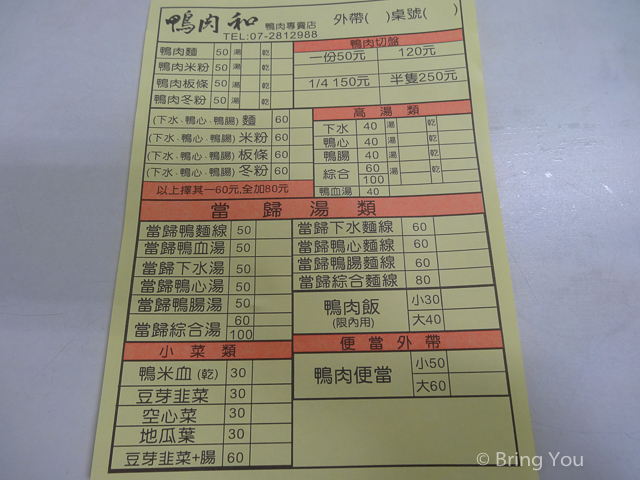 鴨肉和 鴨肉專賣店 外帶( )桌號( )
TEL:07-2812988
鴨肉麵 50 湯 乾
鴨肉米粉 50 湯 乾
鴨肉板條 50 湯 乾
鴨肉冬粉 50 湯 乾
(下水.鴨心.鴨腸) 麵 60
(下水.鴨心.鴨腸) 米粉 60
(下水.鴨心.鴨腸) 板條 60
(下水.鴨心.鴨腸) 冬粉 60
以上擇其一60元,全加80元
鴨肉切盤
一份50元 120元
1/4 150元 半隻250元
高湯類
下水 40 湯 乾
鴨心 40 湯 乾
鴨腸 40 湯 乾
綜合 60 湯 乾
100
鴨血湯 40
當歸湯類
當歸鴨麵線 50
當歸鴨血湯 50
當歸下水湯 50
當歸鴨心湯 50
當歸鴨腸湯 50
當歸綜合湯 60
100
當歸下水麵線 60
當歸鴨心麵線 60
當歸鴨腸麵線 60
當歸綜合麵線 80
鴨肉飯 小30
(限內用) 大40
小菜類
鴨米血(乾) 30
豆芽韭菜 30
空心菜 30
地瓜葉 30
豆芽韭菜+腸 60
便當外帶
鴨肉便當 小50
大60
© Bring You